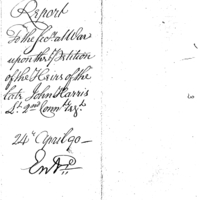 Report
To the Secy. at War
upon the Petition
of the Heirs of the
late John Harris
Lt. 2nd Conn. Regt.
24th April 90 —
Entd.